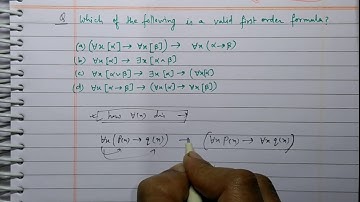 Q Which of the following is a valid first order formula?
(a) (∀x [α] → ∀x [β]) → ∀x (α → β)
(b) ∀x [α] → ∃x [α ∧ β]
(c) ∀x [α ∨ β] → ∃x [α] → (∀x [α])
(d) ∀x [α → β] → (∀x [α] → ∀x [β])
how ∀(x) dis →
∀x (P(x) → q(x)) → (∀x P(x) → ∀x q(x))